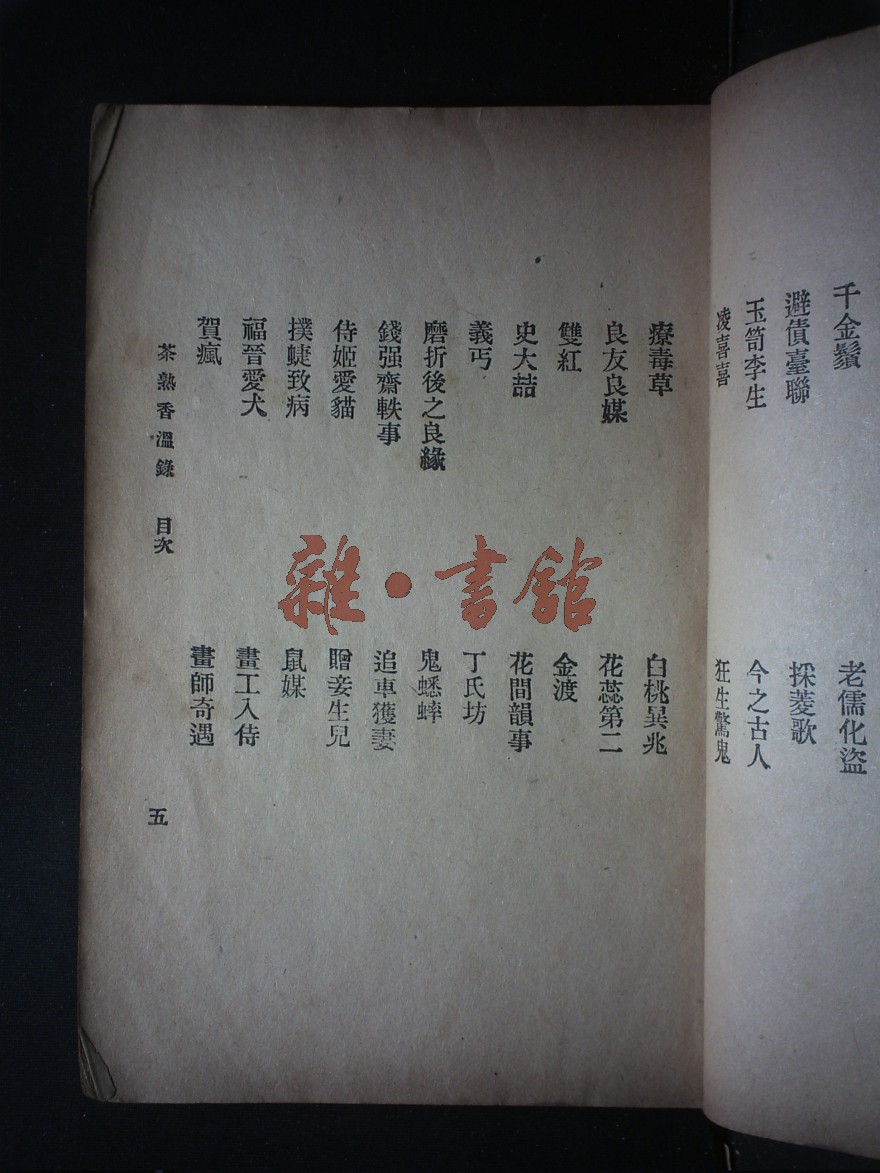 千金鬚
老儒化盜
避債臺聯
採菱歌
玉笥李生
今之古人
凌喜喜
狂生驚鬼
療毒草
白桃異兆
良友良媒
花蕊第二
雙紅
金渡
史大喆
花間韻事
義丐
丁氏坊
磨折後之良緣
鬼蟋蟀
錢强齋軼事
追車獲妻
侍姬愛貓
贈妾生兒
撲蜨致病
鼠媒
福晉愛犬
畫工入侍
賀瘋
畫師奇遇
茶熟香溫錄 目次
五
雜·書館